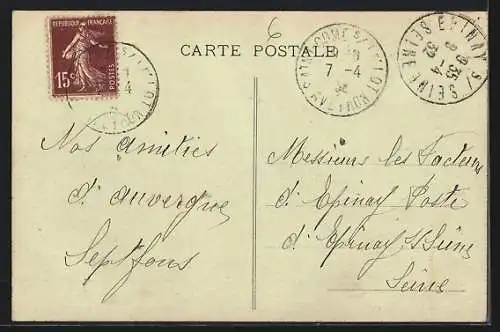 6
CARTE POSTALE
REPUBLIQUE FRANÇAISE
15c
POSTES
7 -4
EPINAY S/ SEINE
SEINE
9 35
8 -4
32
Nos amitiés
d'auvergne
Septfons
Messieurs les Facteurs
d'Epinay Poste
d'Epinay S/Seine
Seine